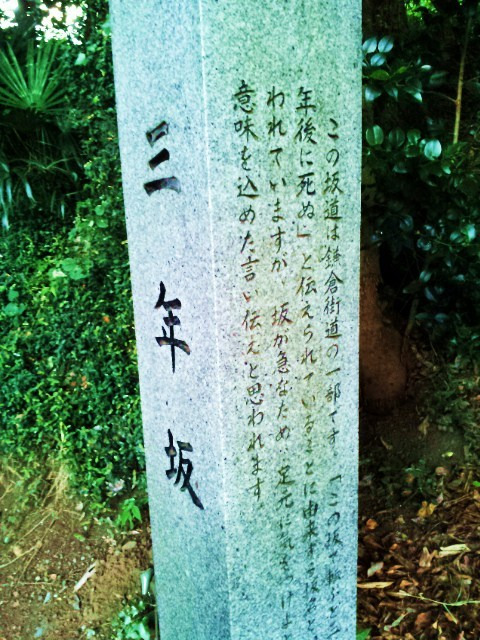 三年坂
この坂道は鎌倉街道の一部です。「この坂で転ぶと三
年後に死ぬ」と伝えられていることに由来する坂名と
われていますが 坂が急なため、足元に気をつけよ
意味を込めた言い伝えと思われます。